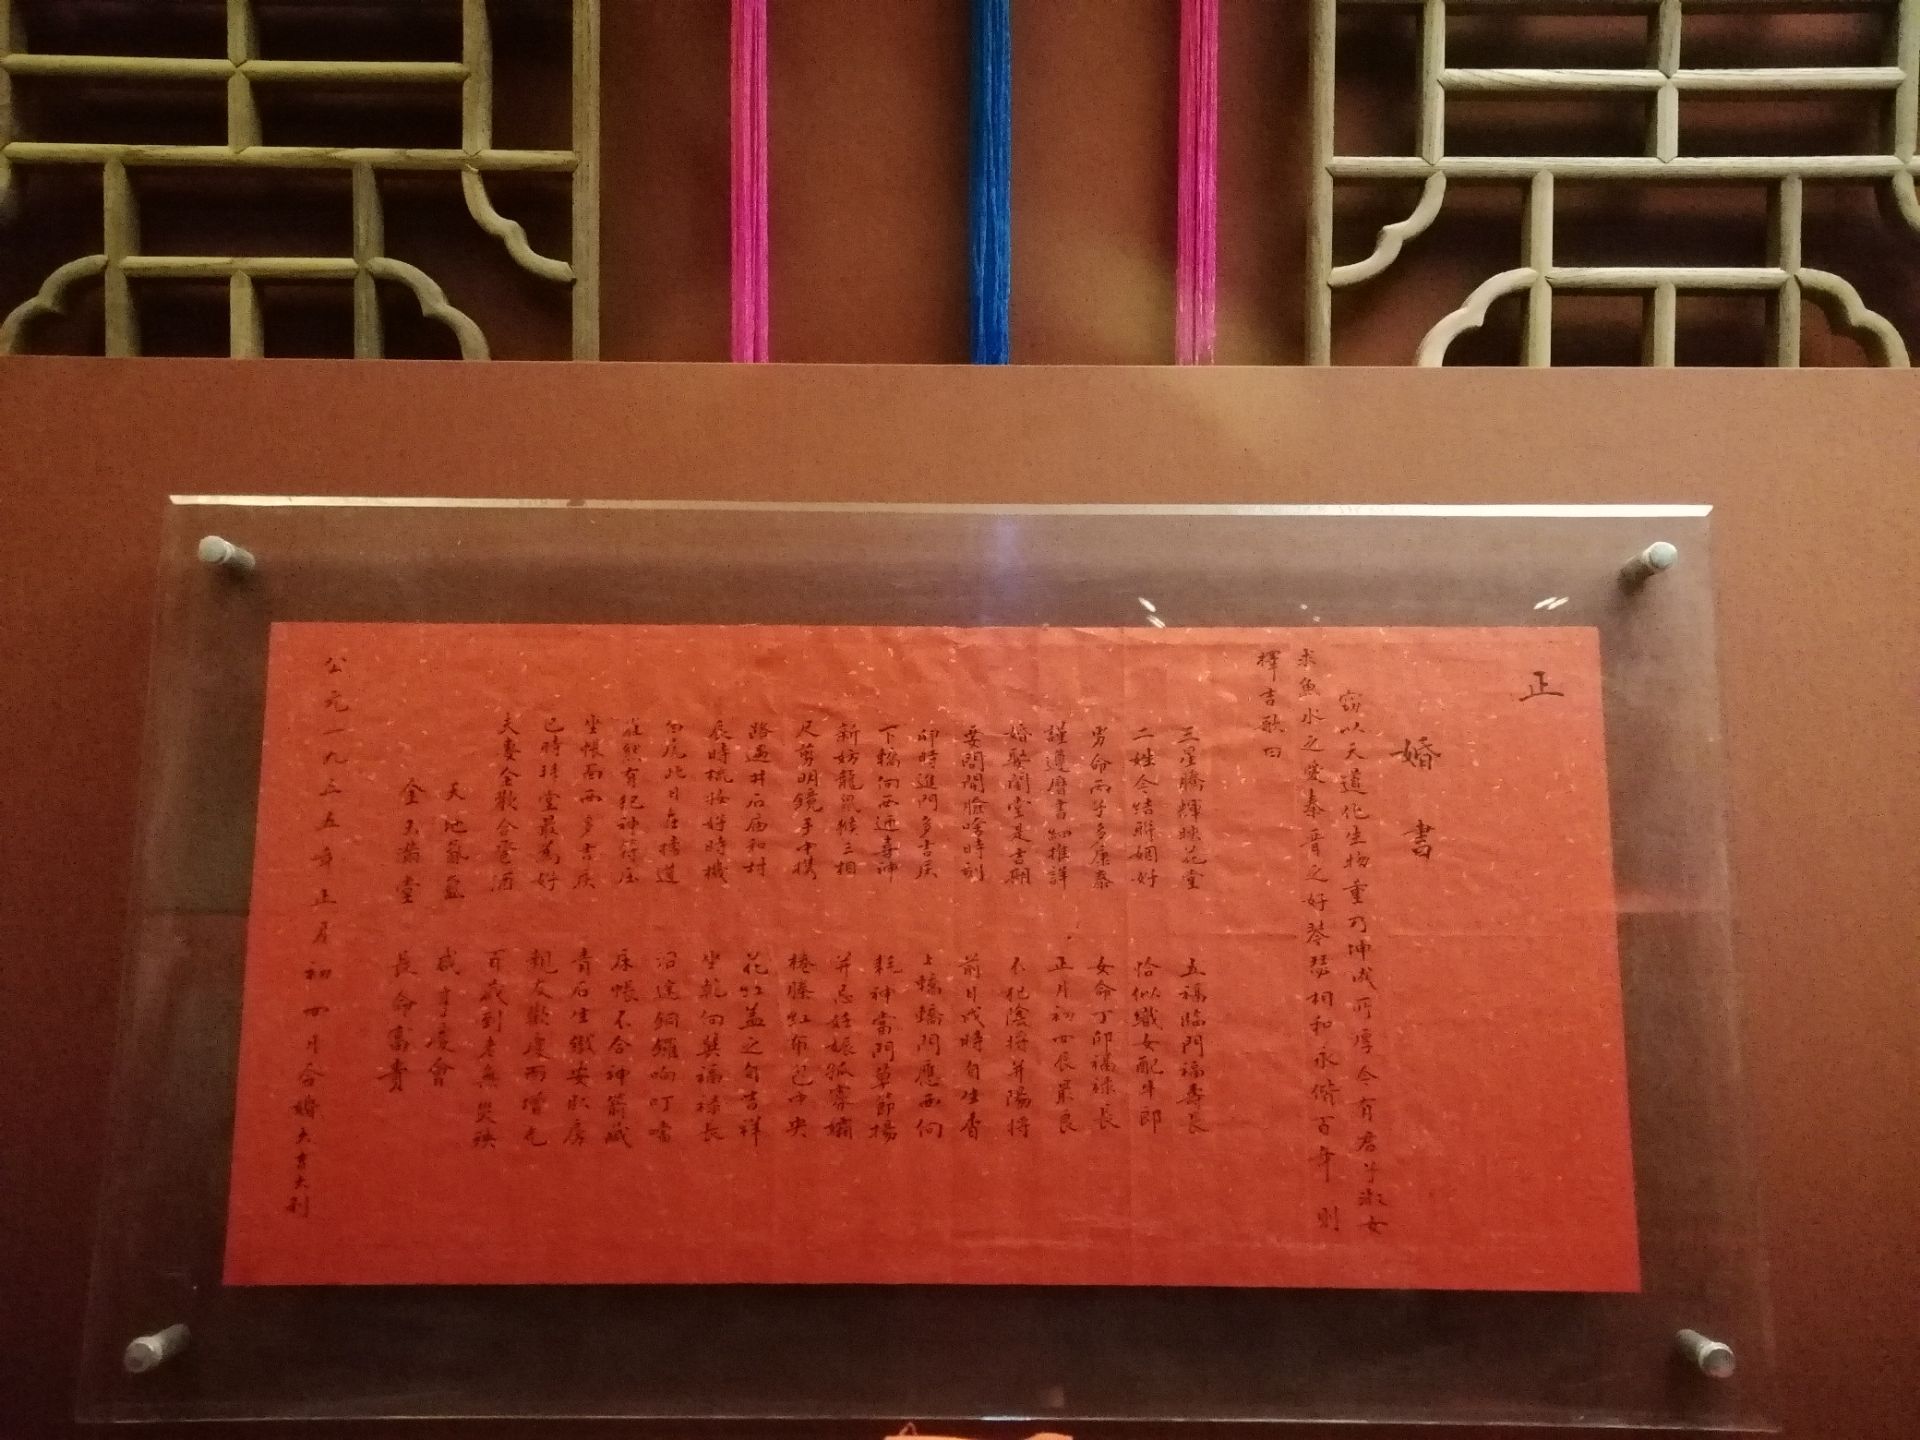 正
婚書
窃以天道化生物重乃坤成所厚今有君子淑女
求魚水之愛秦晋之好琴瑟相和永偕百年 則
擇吉歌曰
三星騰輝映花堂 五福臨門福壽長
二姓今結聯姻好 恰似織女配牛郎
男命丙子多康泰 女命丁卯福禄長
謹遵曆書細推詳 正月初四辰最良
婚娶閣堂是吉期 不犯陰将并陽将
要問開臉啥時刻 前日戌時自生香
卯時進門多吉慶 上轎轎門應西向
下轎向西迎喜神 耗神當門草節揚
新妨龍鼠猴三相 并忌妊娠孤寡孀
尺剪明鏡手中携 捲滕红布包中央
路遇井石庙和村 花红盖之自吉祥
辰時梳妆好時機 坐乾向巽福禄長
白虎此日在擋道 沿途銅鑼响叮噹
雖然有犯神符压 床帳不合神箭藏
坐帳面西多吉庆 青石生鐵安臥房
巳時拜堂最為好 親友歡度雨增光
夫妻全歡合卺酒 百歲到老無災殃
天地氤氲 咸亨慶會
金玉满堂 長命富貴
公元一九三五年正月初四月合婚大吉大利